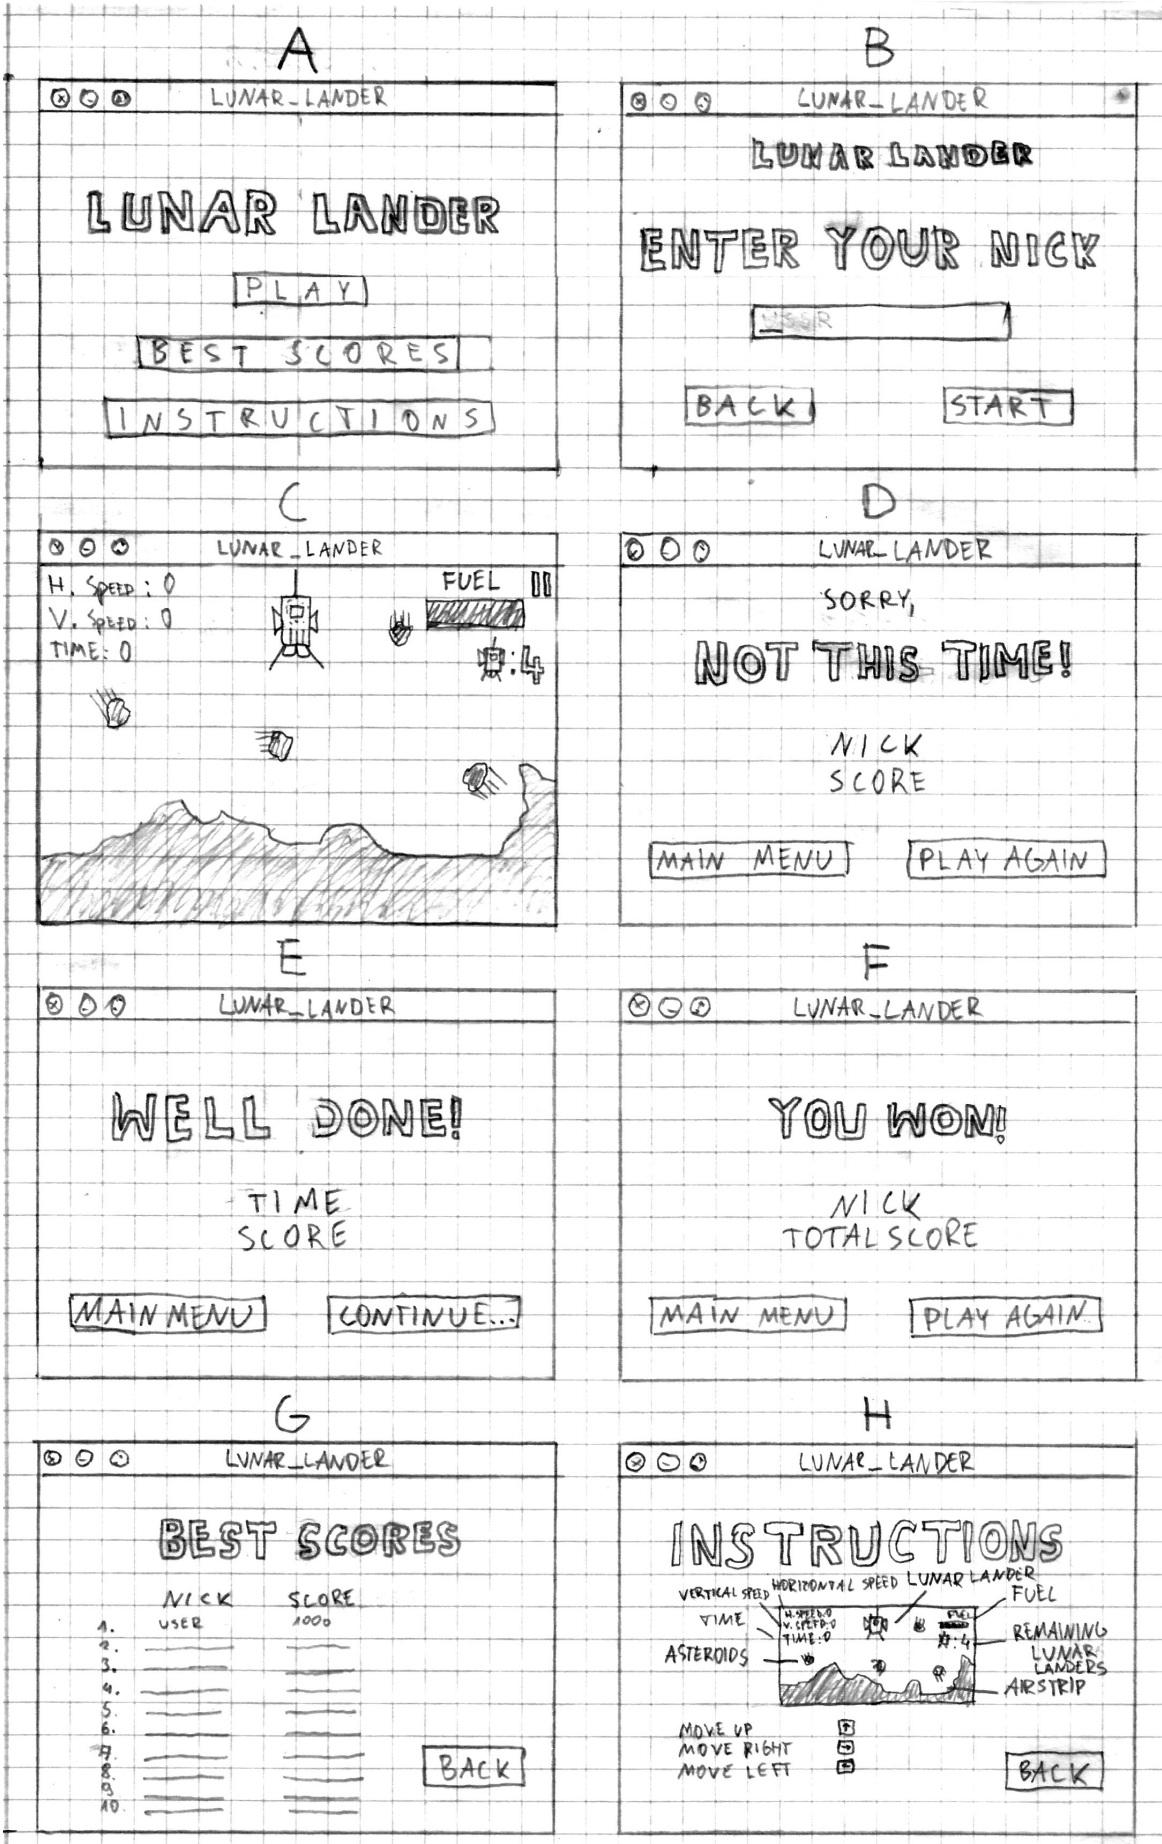 A
LUNAR_LANDER
LUNAR LANDER
PLAY
BEST SCORES
INSTRUCTIONS
B
LUNAR_LANDER
LUNAR LANDER
ENTER YOUR NICK
USER
BACK
START
C
LUNAR_LANDER
H. SPEED: 0
V. SPEED: 0
TIME: 0
FUEL
:4
D
LUNAR_LANDER
SORRY,
NOT THIS TIME!
NICK
SCORE
MAIN MENU
PLAY AGAIN
E
LUNAR_LANDER
WELL DONE!
TIME
SCORE
MAIN MENU
CONTINUE...
F
LUNAR_LANDER
YOU WON!
NICK
TOTAL SCORE
MAIN MENU
PLAY AGAIN
G
LUNAR_LANDER
BEST SCORES
NICK SCORE
1. USER 1000
2.
3.
4.
5.
6.
7.
8.
9
10.
BACK
H
LUNAR_LANDER
INSTRUCTIONS
VERTICAL SPEED HORIZONTAL SPEED LUNAR LANDER
FUEL
TIME
ASTEROIDS
H. SPEED: 0
V. SPEED: 0
TIME: 0
FUEL
:4
REMAINING
LUNAR
LANDERS
AIRSTRIP
MOVE UP ↑
MOVE RIGHT →
MOVE LEFT ←
BACK